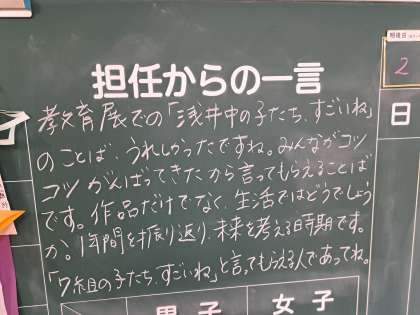 担任からの一言
教育展での「浅井中の子たち、すごいね」
のことば、うれしかったですね。みんながコツ
コツがんばってきたから言ってもらえることば
です。作品だけでなく、生活ではどうでしょう
か。1年間を振り返り、未来を考える時期です。
「7組の子たち、すごいね」と言ってもらえる人であってね。
男子 女子
2
日